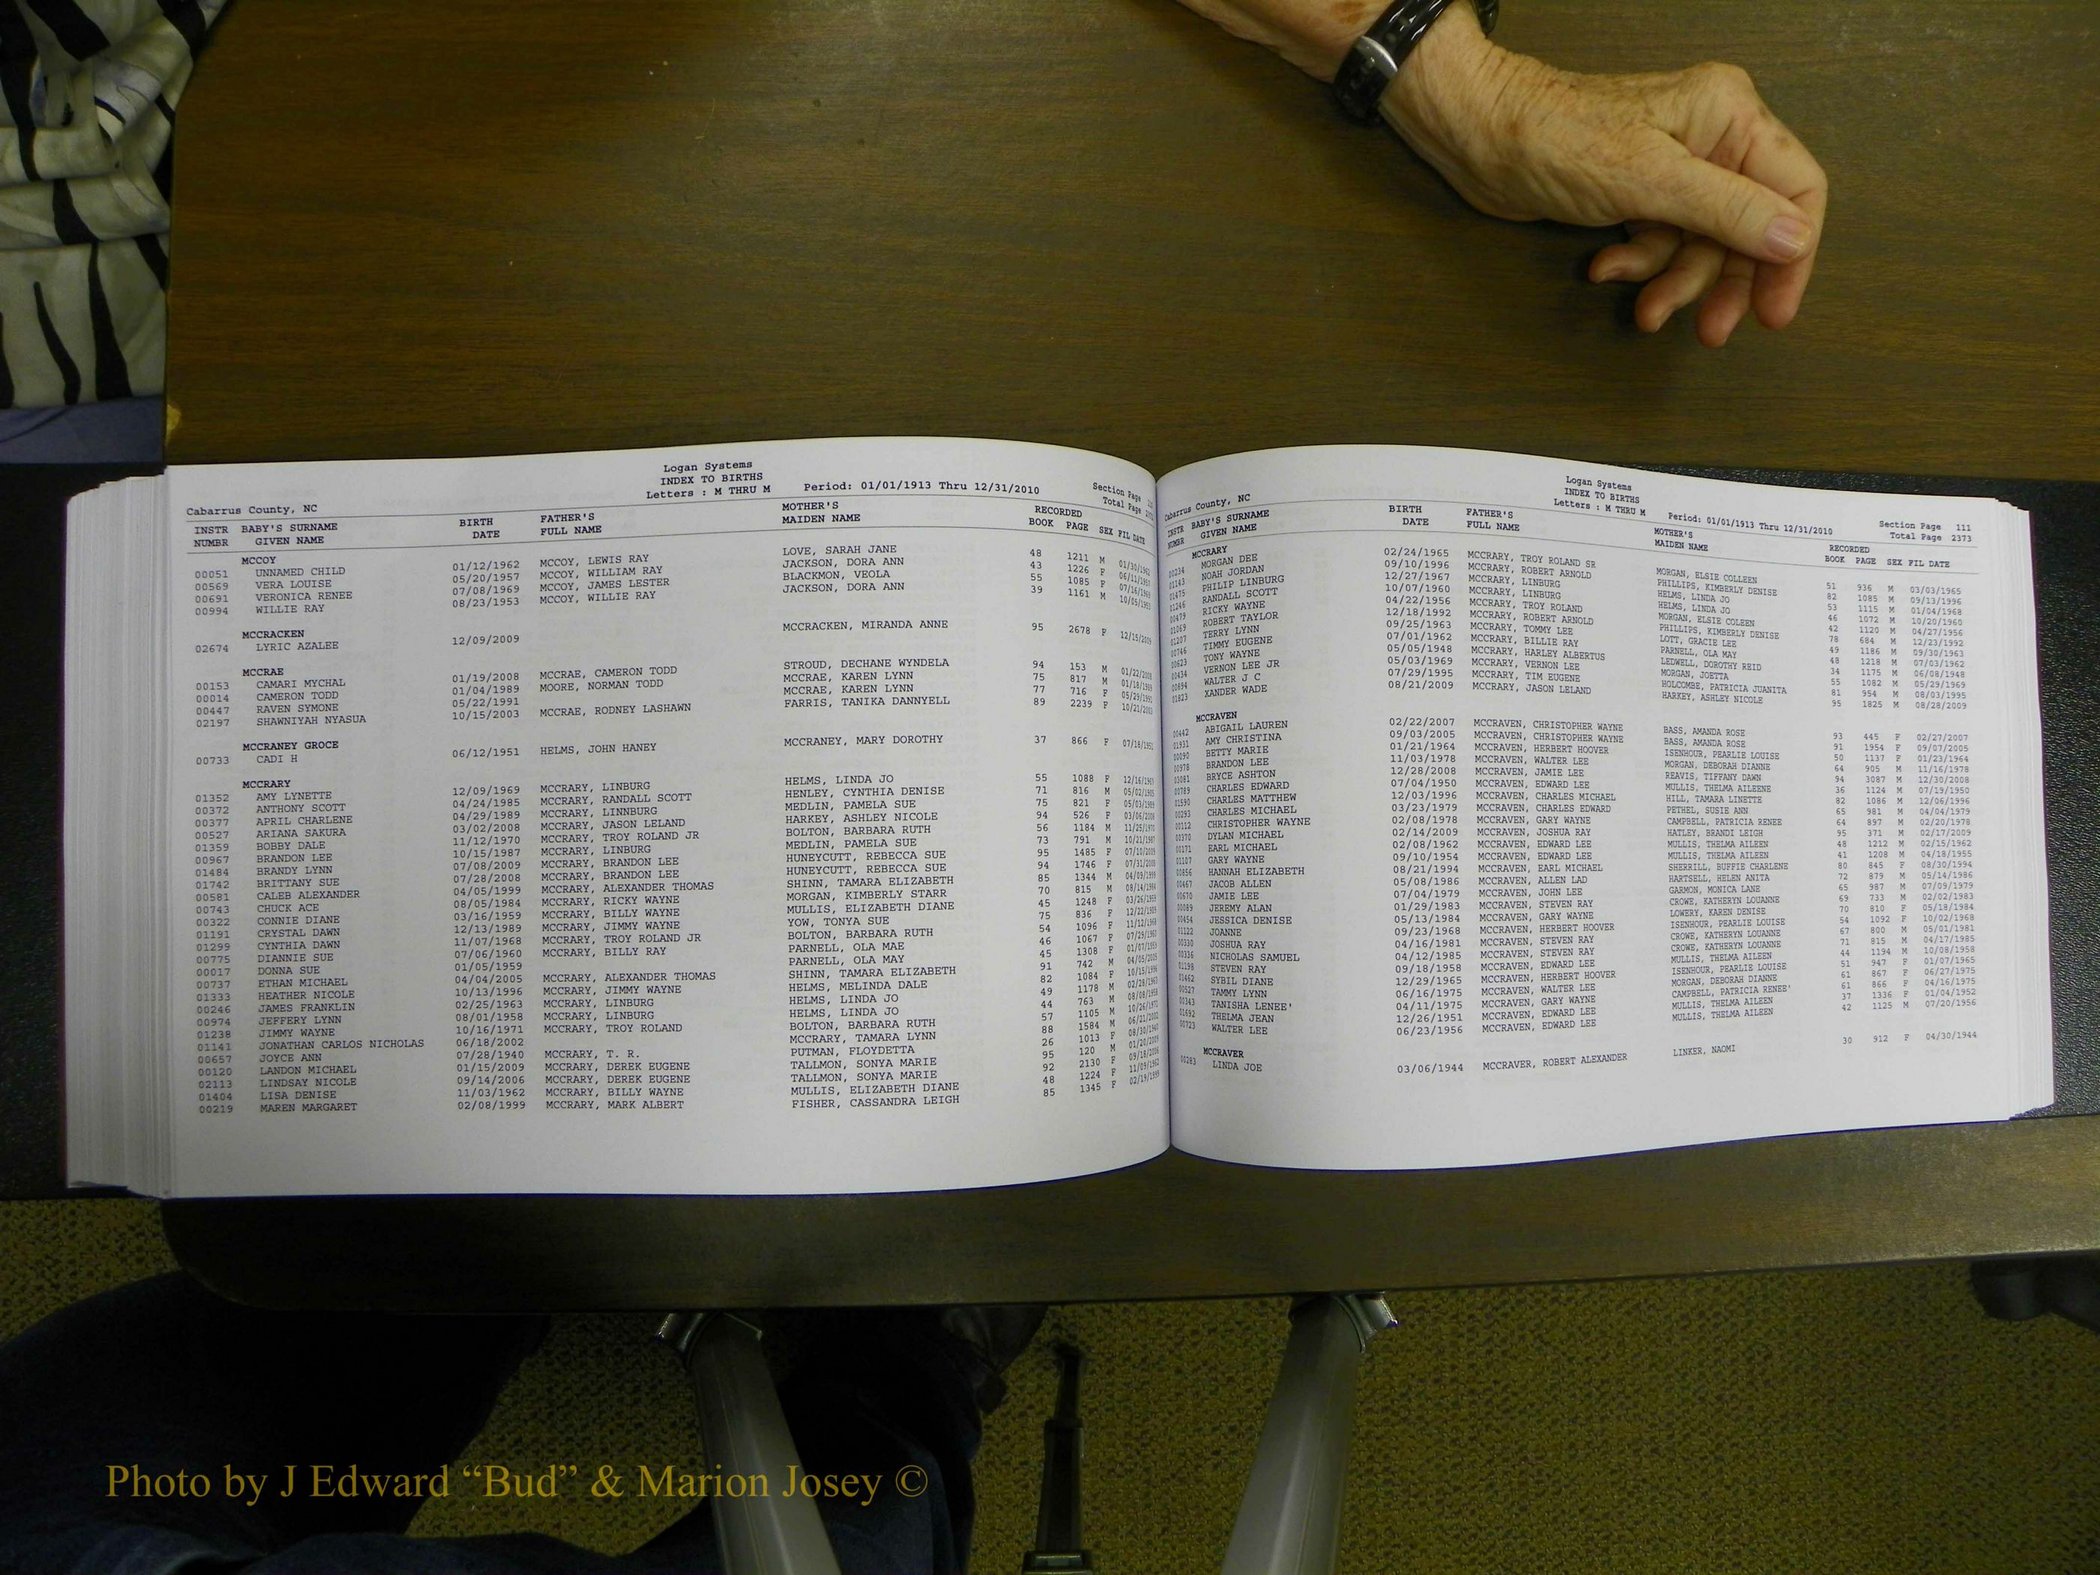 Logan Systems
INDEX TO BIRTHS
Cabarrus County, NC Letters : M THRU M Period: 01/01/1913 Thru 12/31/2010 Section Page
Total Page
INSTR BABY'S SURNAME BIRTH FATHER'S MOTHER'S RECORDED
NUMBR GIVEN NAME DATE FULL NAME MAIDEN NAME BOOK PAGE SEX FIL DATE
MCCOY
00051 UNNAMED CHILD 01/12/1962 MCCOY, LEWIS RAY LOVE, SARAH JANE 48 1211 M 01/30/1962
00569 VERA LOUISE 05/20/1957 MCCOY, WILLIAM RAY JACKSON, DORA ANN 43 1226 F 06/11/1957
00691 VERONICA RENEE 07/08/1969 MCCOY, JAMES LESTER BLACKMON, VEOLA 55 1085 F 07/16/1969
00994 WILLIE RAY 08/23/1953 MCCOY, WILLIE RAY JACKSON, DORA ANN 39 1161 M 10/05/1953
MCCRACKEN
02674 LYRIC AZALEE 12/09/2009 MCCRACKEN, MIRANDA ANNE 95 2678 F 12/15/2009
MCCRAE
00153 CAMARI MYCHAL 01/19/2008 MCCRAE, CAMERON TODD STROUD, DECHANE WYNDELA 94 153 M 01/22/2008
00014 CAMERON TODD 01/04/1989 MOORE, NORMAN TODD MCCRAE, KAREN LYNN 75 817 M 01/18/1989
00447 RAVEN SYMONE 05/22/1991 MCCRAE, KAREN LYNN 77 716 F 05/29/1991
02197 SHAWNIYAH NYASUA 10/15/2003 MCCRAE, RODNEY LASHAWN FARRIS, TANIKA DANNYELL 89 2239 F 10/21/2003
MCCRANEY GROCE
00733 CADI H 06/12/1951 HELMS, JOHN HANEY MCCRANEY, MARY DOROTHY 37 866 F 07/18/1951
MCCRARY
01352 AMY LYNETTE 12/09/1969 MCCRARY, LINBURG HELMS, LINDA JO 55 1088 F 12/16/1969
00372 ANTHONY SCOTT 04/24/1985 MCCRARY, RANDALL SCOTT HENLEY, CYNTHIA DENISE 71 816 M 05/02/1985
00377 APRIL CHARLENE 04/29/1989 MCCRARY, LINNBURG MEDLIN, PAMELA SUE 75 821 F 05/03/1989
00527 ARIANA SAKURA 03/02/2008 MCCRARY, JASON LELAND HARKEY, ASHLEY NICOLE 94 526 F 03/06/2008
01359 BOBBY DALE 11/12/1970 MCCRARY, TROY ROLAND JR BOLTON, BARBARA RUTH 56 1184 M 11/25/1970
00967 BRANDON LEE 10/15/1987 MCCRARY, LINBURG MEDLIN, PAMELA SUE 73 791 M 10/21/1987
01484 BRANDY LYNN 07/08/2009 MCCRARY, BRANDON LEE HUNEYCUTT, REBECCA SUE 95 1485 F 07/10/2009
01742 BRITTANY SUE 07/28/2008 MCCRARY, BRANDON LEE HUNEYCUTT, REBECCA SUE 94 1746 F 07/31/2008
00581 CALEB ALEXANDER 04/05/1999 MCCRARY, ALEXANDER THOMAS SHINN, TAMARA ELIZABETH 85 1344 M 04/09/1999
00743 CHUCK ACE 08/05/1984 MCCRARY, RICKY WAYNE MORGAN, KIMBERLY STARR 70 815 M 08/14/1984
00322 CONNIE DIANE 03/16/1959 MCCRARY, BILLY WAYNE MULLIS, ELIZABETH DIANE 45 1248 F 03/26/1959
01191 CRYSTAL DAWN 12/13/1989 MCCRARY, JIMMY WAYNE YOW, TONYA SUE 75 836 F 12/22/1989
01299 CYNTHIA DAWN 11/07/1968 MCCRARY, TROY ROLAND JR BOLTON, BARBARA RUTH 54 1096 F 11/12/1968
00775 DIANNIE SUE 07/06/1960 MCCRARY, BILLY RAY PARNELL, OLA MAE 46 1067 F 07/29/1960
00017 DONNA SUE 01/05/1959 PARNELL, OLA MAY 45 1308 F 01/07/1959
00737 ETHAN MICHAEL 04/04/2005 MCCRARY, ALEXANDER THOMAS SHINN, TAMARA ELIZABETH 91 742 M 04/05/2005
01333 HEATHER NICOLE 10/13/1996 MCCRARY, JIMMY WAYNE HELMS, MELINDA DALE 82 1084 F 10/15/1996
00246 JAMES FRANKLIN 02/25/1963 MCCRARY, LINBURG HELMS, LINDA JO 49 1178 M 02/28/1963
00974 JEFFERY LYNN 08/01/1958 MCCRARY, LINBURG HELMS, LINDA JO 44 763 M 08/08/1958
01238 JIMMY WAYNE 10/16/1971 MCCRARY, TROY ROLAND BOLTON, BARBARA RUTH 57 1105 M 10/26/1971
01141 JONATHAN CARLOS NICHOLAS 06/18/2002 MCCRARY, TAMARA LYNN 88 1584 M 06/21/2002
00657 JOYCE ANN 07/28/1940 MCCRARY, T. R. PUTMAN, FLOYDETTA 26 1013 F 08/30/1940
00120 LANDON MICHAEL 01/15/2009 MCCRARY, DEREK EUGENE TALLMON, SONYA MARIE 95 120 M 01/20/2009
02113 LINDSAY NICOLE 09/14/2006 MCCRARY, DEREK EUGENE TALLMON, SONYA MARIE 92 2130 F 09/18/2006
01404 LISA DENISE 11/03/1962 MCCRARY, BILLY WAYNE MULLIS, ELIZABETH DIANE 48 1224 F 11/09/1962
00219 MAREN MARGARET 02/08/1999 MCCRARY, MARK ALBERT FISHER, CASSANDRA LEIGH 85 1345 F 02/19/1999
Logan Systems
INDEX TO BIRTHS
Cabarrus County, NC Letters : M THRU M Period: 01/01/1913 Thru 12/31/2010 Section Page 111
Total Page 2373
INSTR BABY'S SURNAME BIRTH FATHER'S MOTHER'S RECORDED
NUMBR GIVEN NAME DATE FULL NAME MAIDEN NAME BOOK PAGE SEX FIL DATE
MCCRARY
00234 MORGAN DEE 02/24/1965 MCCRARY, TROY ROLAND SR MORGAN, ELSIE COLLEEN 51 936 M 03/03/1965
01143 NOAH JORDAN 09/10/1996 MCCRARY, ROBERT ARNOLD PHILLIPS, KIMBERLY DENISE 82 1085 M 09/13/1996
01475 PHILIP LINBURG 12/27/1967 MCCRARY, LINBURG HELMS, LINDA JO 53 1115 M 01/04/1968
01246 RANDALL SCOTT 10/07/1960 MCCRARY, LINBURG HELMS, LINDA JO 46 1072 M 10/20/1960
00479 RICKY WAYNE 04/22/1956 MCCRARY, TROY ROLAND MORGAN, ELSIE COLEEN 42 1120 M 04/27/1956
01069 ROBERT TAYLOR 12/18/1992 MCCRARY, ROBERT ARNOLD PHILLIPS, KIMBERLY DENISE 78 684 M 12/23/1992
01207 TERRY LYNN 09/25/1963 MCCRARY, TOMMY LEE LOTT, GRACIE LEE 49 1186 M 09/30/1963
00746 TIMMY EUGENE 07/01/1962 MCCRARY, BILLIE RAY PARNELL, OLA MAY 48 1218 M 07/03/1962
00623 TONY WAYNE 05/05/1948 MCCRARY, HARLEY ALBERTUS LEDWELL, DOROTHY REID 34 1175 M 06/08/1948
00434 VERNON LEE JR 05/03/1969 MCCRARY, VERNON LEE MORGAN, JOETTA 55 1082 M 05/29/1969
00894 WALTER J C 07/29/1995 MCCRARY, TIM EUGENE HOLCOMBE, PATRICIA JUANITA 81 954 M 08/03/1995
01823 XANDER WADE 08/21/2009 MCCRARY, JASON LELAND HARKEY, ASHLEY NICOLE 95 1825 M 08/28/2009
MCCRAVEN
00442 ABIGAIL LAUREN 02/22/2007 MCCRAVEN, CHRISTOPHER WAYNE BASS, AMANDA ROSE 93 445 F 02/27/2007
01931 AMY CHRISTINA 09/03/2005 MCCRAVEN, CHRISTOPHER WAYNE BASS, AMANDA ROSE 91 1954 F 09/07/2005
00090 BETTY MARIE 01/21/1964 MCCRAVEN, HERBERT HOOVER ISENHOUR, PEARLIE LOUISE 50 1137 F 01/23/1964
00978 BRANDON LEE 11/03/1978 MCCRAVEN, WALTER LEE MORGAN, DEBORAH DIANNE 64 905 M 11/16/1978
03081 BRYCE ASHTON 12/28/2008 MCCRAVEN, JAMIE LEE REAVIS, TIFFANY DAWN 94 3087 M 12/30/2008
00789 CHARLES EDWARD 07/04/1950 MCCRAVEN, EDWARD LEE MULLIS, THELMA AILEENE 36 1124 M 07/19/1950
01590 CHARLES MATTHEW 12/03/1996 MCCRAVEN, CHARLES MICHAEL HILL, TAMARA LINETTE 82 1086 M 12/06/1996
00293 CHARLES MICHAEL 03/23/1979 MCCRAVEN, CHARLES EDWARD PETHEL, SUSIE ANN 65 981 M 04/04/1979
00112 CHRISTOPHER WAYNE 02/08/1978 MCCRAVEN, GARY WAYNE CAMPBELL, PATRICIA RENEE 64 897 M 02/20/1978
00370 DYLAN MICHAEL 02/14/2009 MCCRAVEN, JOSHUA RAY HATLEY, BRANDI LEIGH 95 371 M 02/17/2009
00171 EARL MICHAEL 02/08/1962 MCCRAVEN, EDWARD LEE MULLIS, THELMA AILEEN 48 1212 M 02/15/1962
01107 GARY WAYNE 09/10/1954 MCCRAVEN, EDWARD LEE MULLIS, THELMA AILEEN 41 1208 M 04/18/1955
00856 HANNAH ELIZABETH 08/21/1994 MCCRAVEN, EARL MICHAEL SHERRILL, BUFFIE CHARLENE 80 845 F 08/30/1994
00467 JACOB ALLEN 05/08/1986 MCCRAVEN, ALLEN LAD HARTSELL, HELEN ANITA 72 879 M 05/14/1986
00670 JAMIE LEE 07/07/1979 MCCRAVEN, JOHN LEE GARMON, MONICA LANE 65 987 M 07/09/1979
00089 JEREMY ALAN 01/29/1983 MCCRAVEN, STEVEN RAY CROWE, KATHERYN LOUANNE 69 733 M 02/02/1983
00454 JESSICA DENISE 05/13/1984 MCCRAVEN, GARY WAYNE LOWERY, KAREN DENISE 70 810 F 05/18/1984
01122 JOANNE 09/23/1968 MCCRAVEN, HERBERT HOOVER ISENHOUR, PEARLIE LOUISE 54 1092 F 10/02/1968
00330 JOSHUA RAY 04/16/1981 MCCRAVEN, STEVEN RAY CROWE, KATHERYN LOUANNE 67 800 M 05/01/1981
00336 NICHOLAS SAMUEL 04/12/1985 MCCRAVEN, STEVEN RAY CROWE, KATHERYN LOUANNE 71 815 M 04/17/1985
01198 STEVEN RAY 09/18/1958 MCCRAVEN, EDWARD LEE MULLIS, THELMA AILEEN 44 1194 M 10/08/1958
01662 SYBIL DIANE 12/29/1965 MCCRAVEN, HERBERT HOOVER ISENHOUR, PEARLIE LOUISE 51 947 F 01/07/1965
00527 TAMMY LYNN 06/16/1975 MCCRAVEN, WALTER LEE MORGAN, DEBORAH DIANNE 61 867 F 06/27/1975
00343 TANISHA LENEE' 04/11/1975 MCCRAVEN, GARY WAYNE CAMPBELL, PATRICIA RENEE' 61 866 F 04/16/1975
01692 THELMA JEAN 12/26/1951 MCCRAVEN, EDWARD LEE MULLIS, THELMA AILEEN 37 1336 F 01/04/1952
00723 WALTER LEE 06/23/1956 MCCRAVEN, EDWARD LEE MULLIS, THELMA AILEEN 42 1125 M 07/20/1956
MCCRAVER
00283 LINDA JOE 03/06/1944 MCCRAVER, ROBERT ALEXANDER LINKER, NAOMI 30 912 F 04/30/1944
Photo by J Edward “Bud” & Marion Josey ©